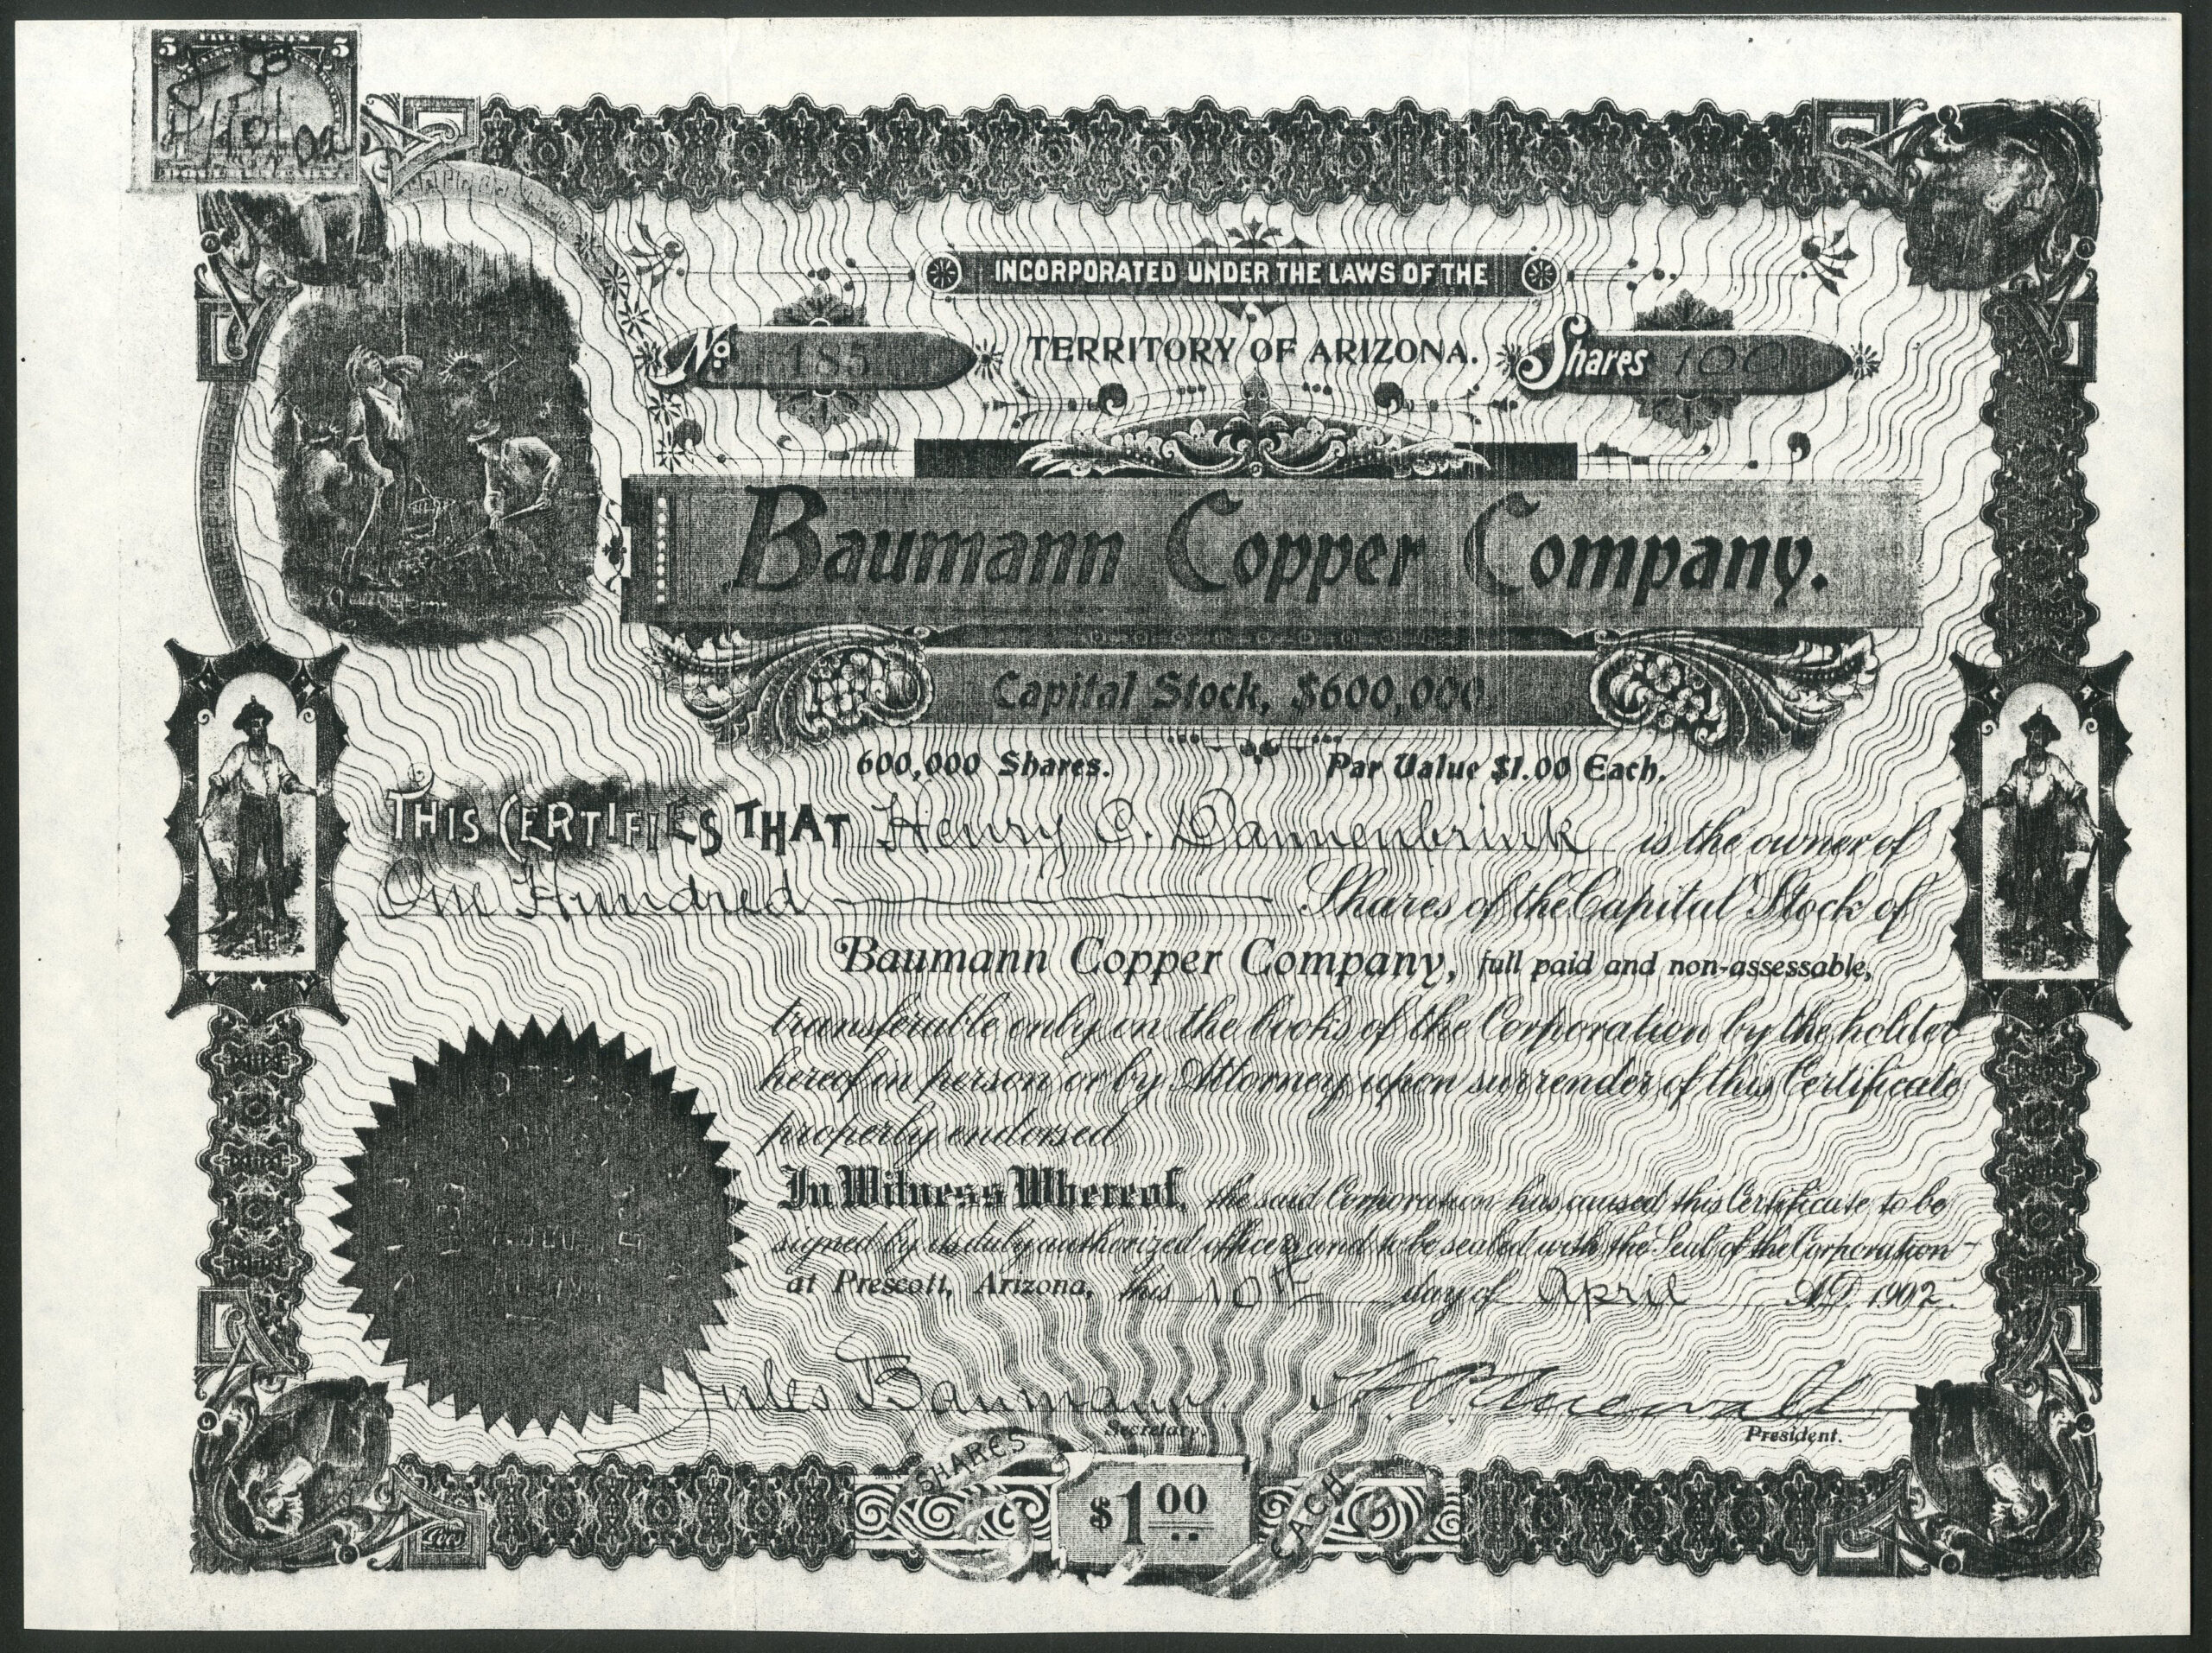 5 FIVE CENTS 5
J B
4/10/02
INCORPORATED UNDER THE LAWS OF THE
No. 185 TERRITORY OF ARIZONA. Shares 100
Baumann Copper Company.
Capital Stock, $600,000.
600,000 Shares. Par Value $1.00 Each.
THIS CERTIFIES THAT Henry C. Dannenbrink is the owner of
One Hundred Shares of the Capital Stock of
Baumann Copper Company, full paid and non-assessable,
transferable only on the books of the Corporation by the holder
hereof in person or by Attorney upon surrender of this Certificate
properly endorsed
In Witness Whereof, the said Corporation has caused this Certificate to be
signed by its duly authorized officers and to be sealed with the Seal of the Corporation
at Prescott, Arizona, this 10th day of April A.D. 1902.
Jules Baumann
Secretary. President.
SHARES $1 00 EACH